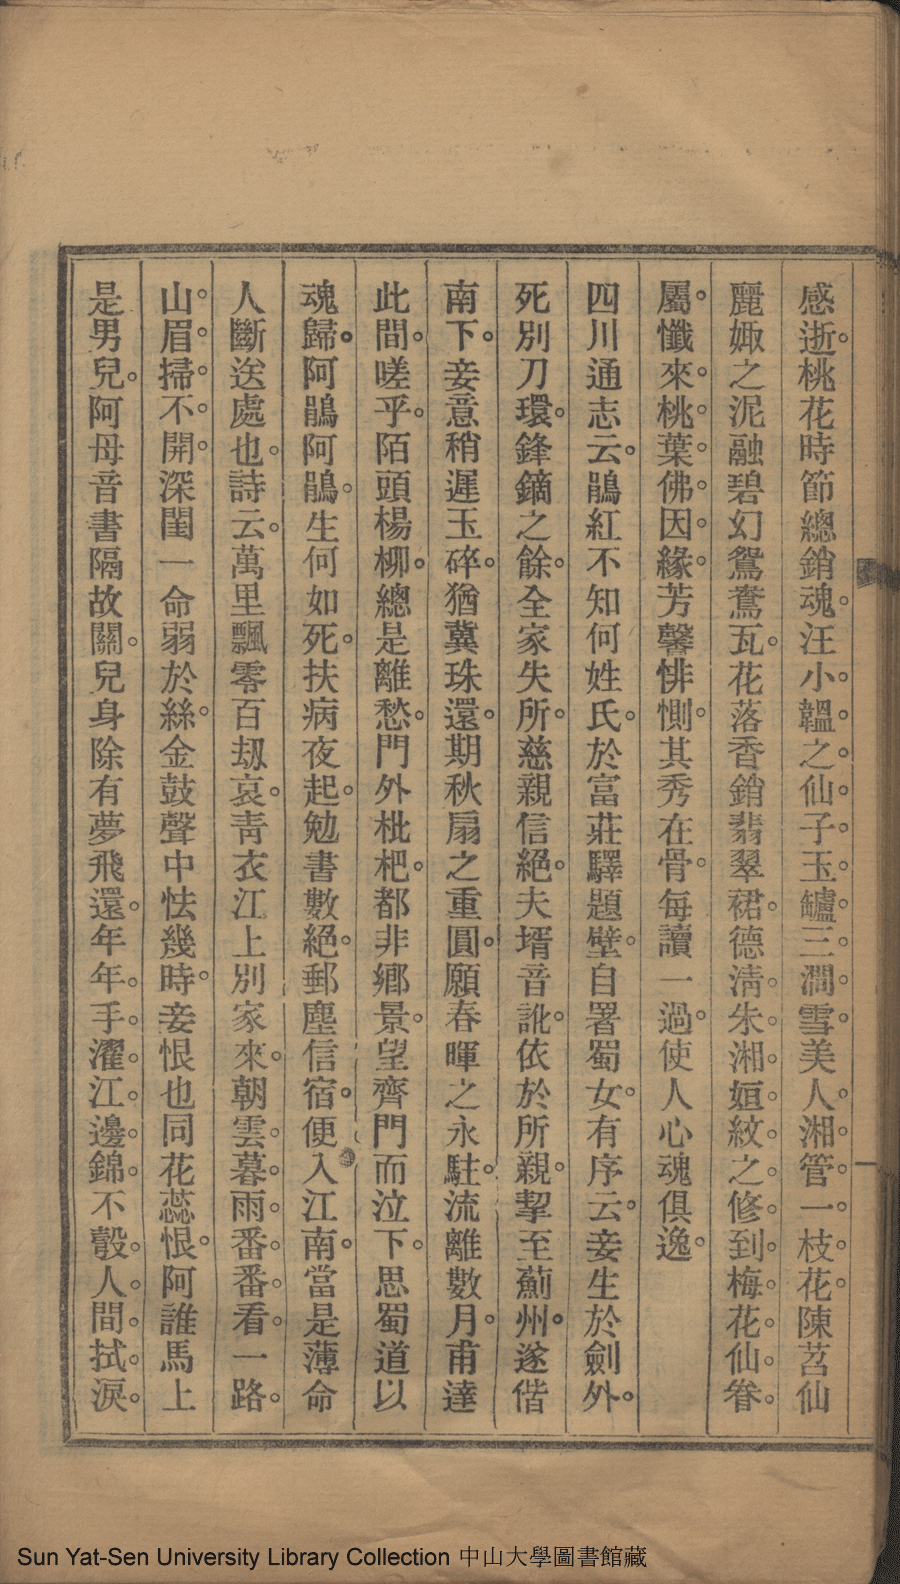 感逝桃花時節總銷魂汪小韞之仙子玉鱸三澗雪美人湘管一枝花陳苕仙
麗娵之泥融碧幻鴛鴦瓦花落香銷翡翠裙德淸朱湘姮紋之修到梅花仙眷
屬懺來桃葉佛因緣芳馨悱惻其秀在骨每讀一過使人心魂俱逸
四川通志云鵑紅不知何姓氏於富莊驛題壁自署蜀女有序云妾生於劍外
死別刀環鋒鏑之餘全家失所慈親信絕夫壻音訛依於所親挈至薊州遂偕
南下妾意稍遲玉碎猶冀珠還期秋扇之重圓願春暉之永駐流離數月甫達
此間嗟乎陌頭楊柳總是離愁門外枇杷都非鄉景望齊門而泣下思蜀道以
魂歸阿鵑阿鵑生何如死扶病夜起勉書數絕郵塵信宿便入江南當是薄命
人斷送處也詩云萬里飄零百刼哀靑衣江上別家來朝雲暮雨番番看一路
山眉掃不開深閨一命弱於絲金鼓聲中怯幾時妾恨也同花蕊恨阿誰馬上
是男兒阿母音書隔故關兒身除有夢飛還年年手濯江邊錦不彀人間拭淚
Sun Yat-Sen University Library Collection 中山大學圖書館藏